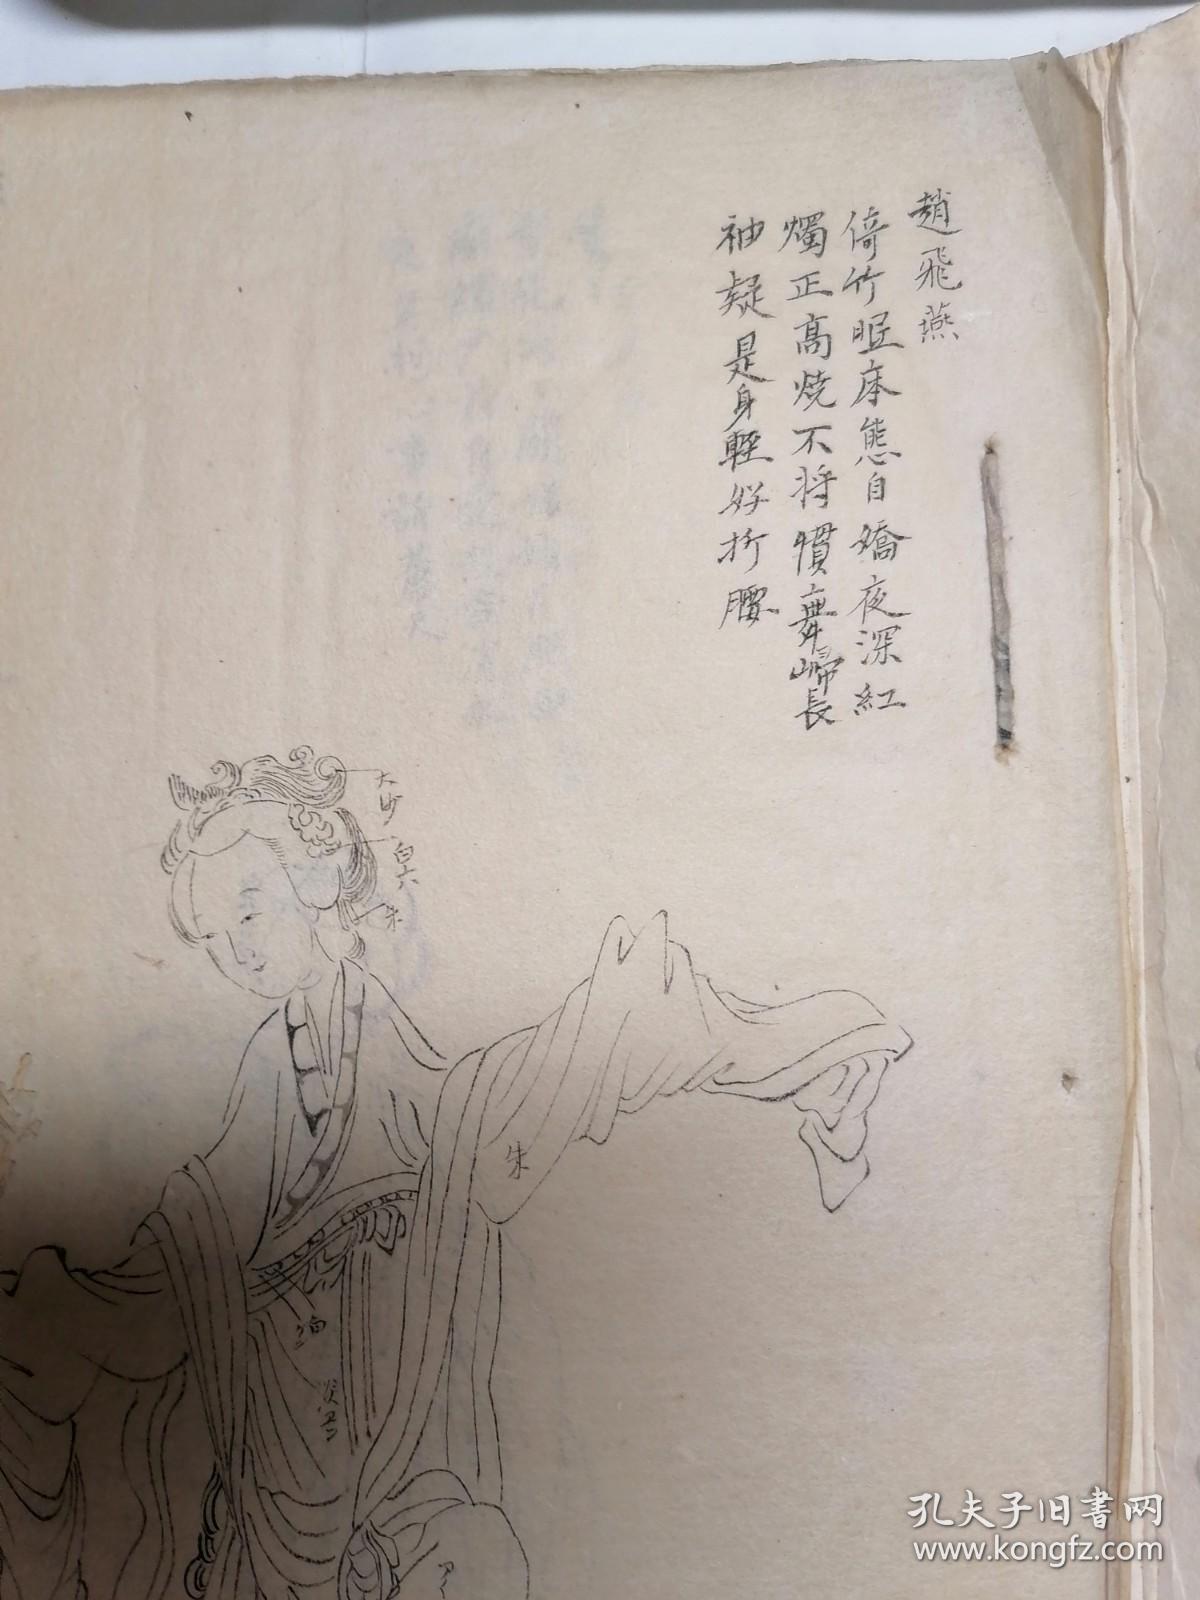 趙飛燕
倚竹眠床態自嬌夜深紅
燭正高燒不將慣舞歸長
袖疑是身輕好折腰
大少
白六
朱
朱
孔夫子旧书网
www.kongfz.com